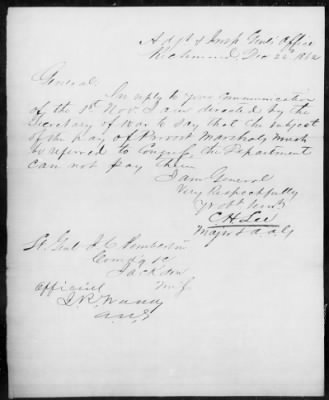 Adjt & Insp Genls Office
Richmond, Dec 22d 1862
General:
In reply to your communication
of the Nov. I am directed by the
Secretary of War to say that the subject
of the pay of Provost Marshals must
be referred to Congress, the Department
can not pay them.
I am General
Very Respectfully
Yr obt Servt
C H Lee
Maj & A A G
Lt. Genl J. C. Pemberton
Comdg &c
Jackson
Official Mi.
A.A.G